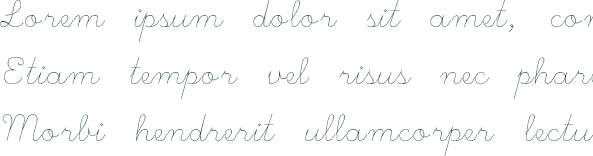 Lorem ipsum dolor sit amet, con
Etiam tempor vel risus nec phar
Morbi hendrerit ullamcorper lectu